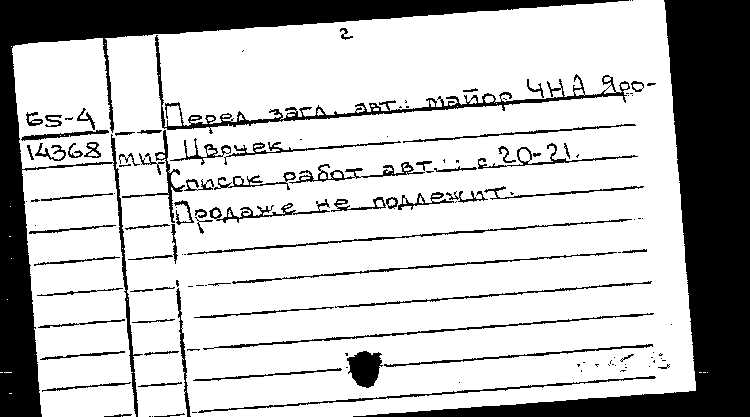 2
Б5-4 Перед загл. авт.: майор ЧНА Яро-
14368 мир Цврчек.
Список работ авт.: с.20-21.
Продаже не подлежит.